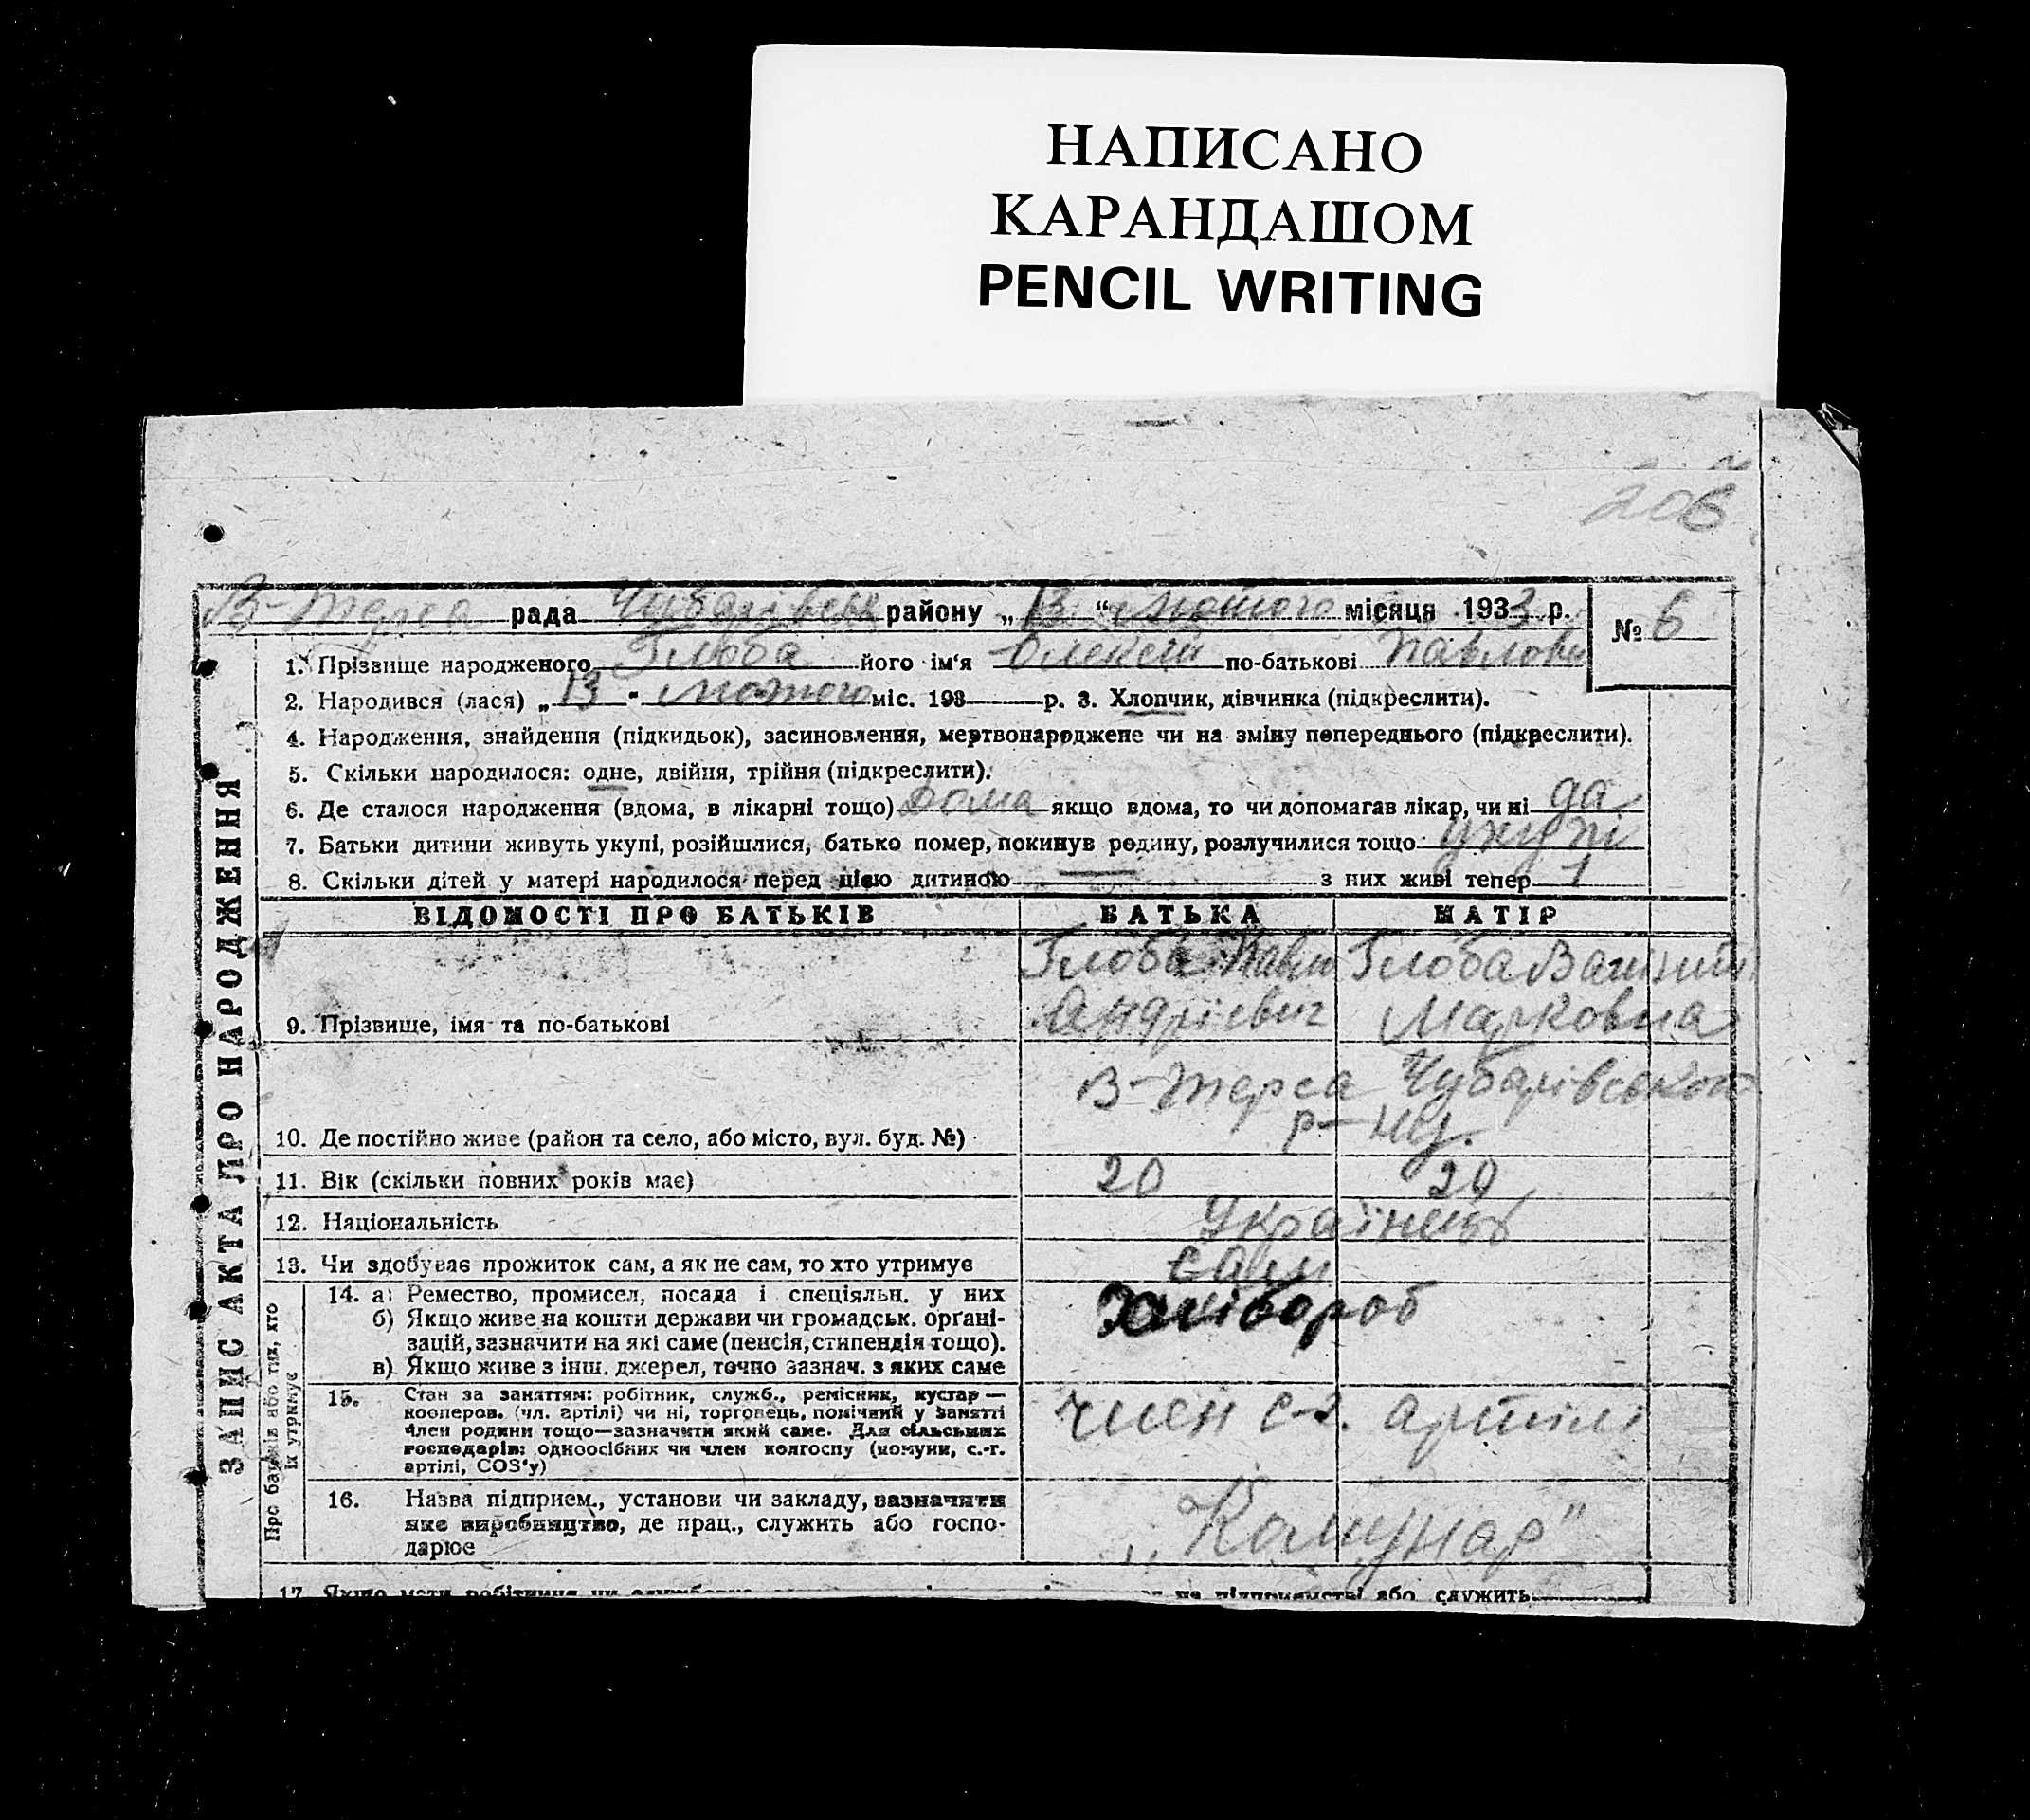 НАПИСАНО
КАРАНДАШОМ
PENCIL WRITING
206
В-Терса рада Чубарівськ району „13“ Лютого місяця 1933 р.
№ 6
1. Прізвище народженого Глоба його ім‘я Олексій по-батькові Павлови
2. Народився (лася) „13" Лютого міс. 193 р. 3. Хлопчик, дівчинка (підкреслити).
4. Народження, знайдення (підкидьок), засиновлення, мертвонароджене чи на зміну попереднього (підкреслити).
5. Скільки народилося: одне, двійня, трійня (підкреслити).
6. Де сталося народження (вдома, в лікарні тощо) Дома якщо вдома, то чи допомагав лікар, чи ні да
7. Батьки дитини живуть укупі, розійшлися, батько помер, покинув родину, розлучилися тощо укупі
8. Скільки дітей у матері народилося перед цією дитиною — з них живі тепер 1
ЗАПИС АКТА ПРО НАРОДЖЕННЯ
ВІДОМОСТІ ПРО БАТЬКІВ БАТЬКА МАТІР
Глоба Павло Глоба
Андрієвич Марковна
9. Прізвище, імя та по-батькові
В-Терса Чубарівського
р-ну.
10. Де постійно живе (район та село, або місто, вул. буд. №)
11. Вік (скільки повних років має) 20 20
12. Національність Українець
13. Чи здобуває прожиток сам, а як не сам, то хто утримує сам
Про батьків або тих, хто
їх утримує
14. а) Ремество, промисел, посада і спеціяльн. у них
б) Якщо живе на кошти держави чи громадськ. органі-
зацій, зазначити на які саме (пенсія, стипендія тощо).
в) Якщо живе з інш. джерел, точно зазнач. з яких саме
Хлібороб
15. Стан за заняттям: робітник, служб., ремісник, кустар —
кооперов. (чл. артілі) чи ні, торговець, помічний у занятті
член родини тощо—зазначити який саме. Для сільських
господарів: одноосібник чи член колгоспу (комуни, с.-г.
артілі, СОЗ'у)
член с-г. артілі
16. Назва підприєм., установи чи закладу, зазначити
яке виробництво, де прац., служить або госпо-
дарює
„Комунар"
17. Якщо мати робітниця чи на підприємстві або служить